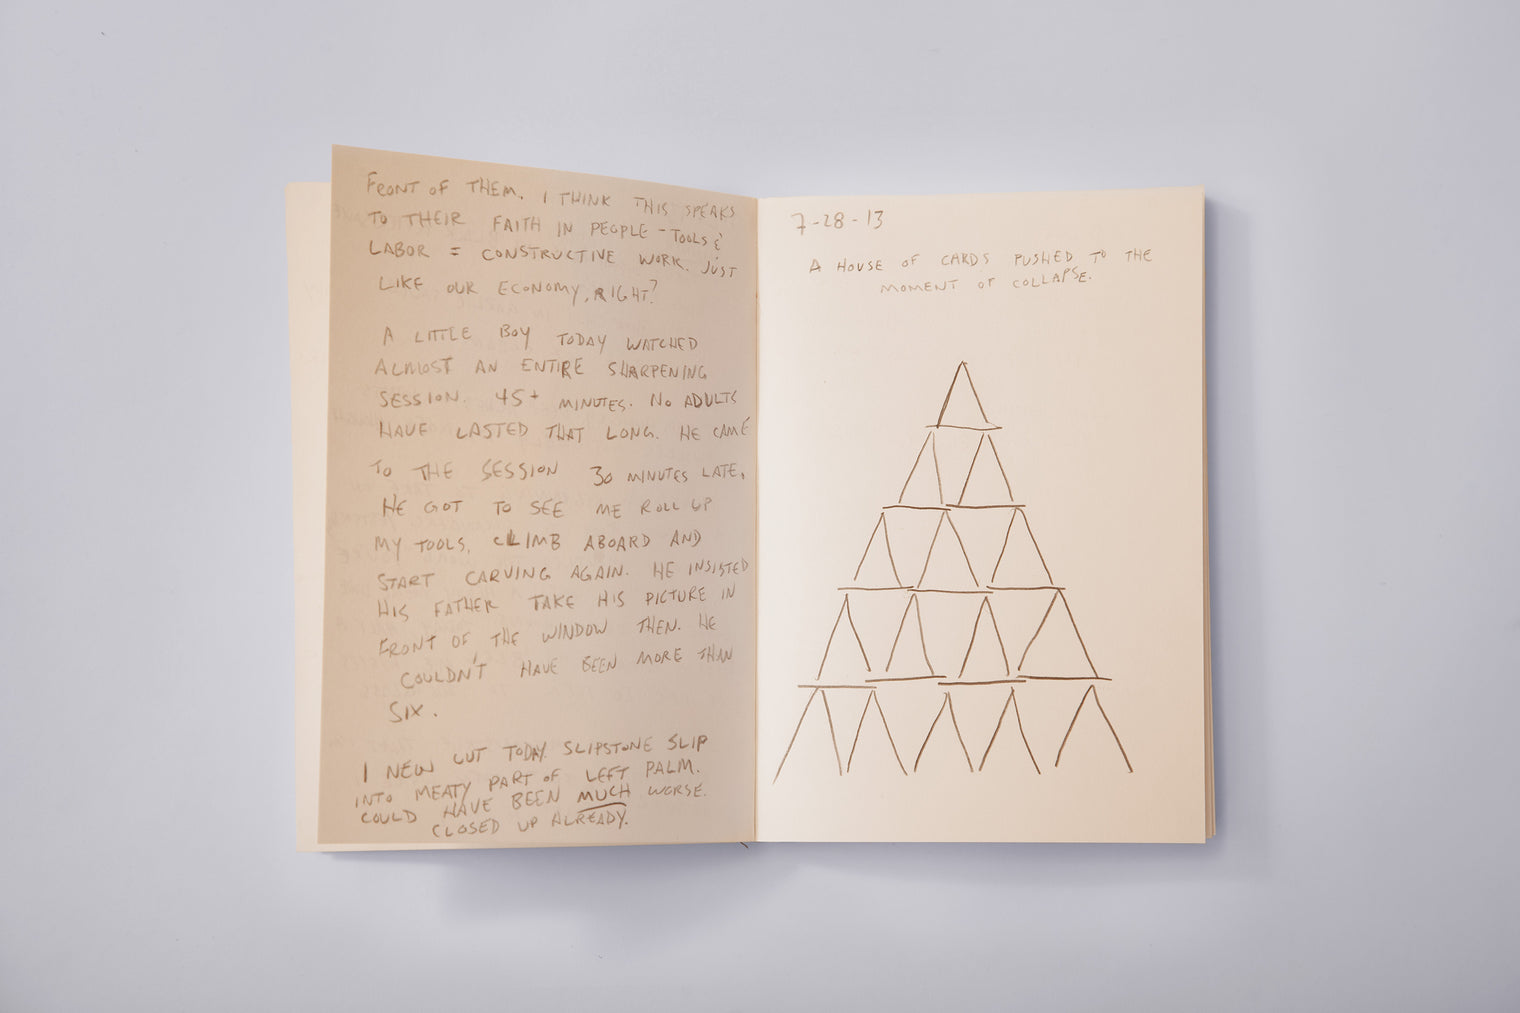 FRONT OF THEM. I THINK THIS SPEAKS
TO THEIR FAITH IN PEOPLE - TOOLS &
LABOR = CONSTRUCTIVE WORK. JUST
LIKE OUR ECONOMY, RIGHT?
A LITTLE BOY TODAY WATCHED
ALMOST AN ENTIRE SHARPENING
SESSION. 45+ MINUTES. NO ADULTS
HAVE LASTED THAT LONG. HE CAME
TO THE SESSION 30 MINUTES LATE.
HE GOT TO SEE ME ROLL UP
MY TOOLS, CLIMB ABOARD AND
START CARVING AGAIN. HE INSISTED
HIS FATHER TAKE HIS PICTURE IN
FRONT OF THE WINDOW THEN. HE
COULDN'T HAVE BEEN MORE THAN
SIX.
1 NEW CUT TODAY. SLIPSTONE SLIP
INTO MEATY PART OF LEFT PALM.
COULD HAVE BEEN MUCH WORSE.
CLOSED UP ALREADY.
7-28-13
A HOUSE OF CARDS PUSHED TO THE
MOMENT OF COLLAPSE.